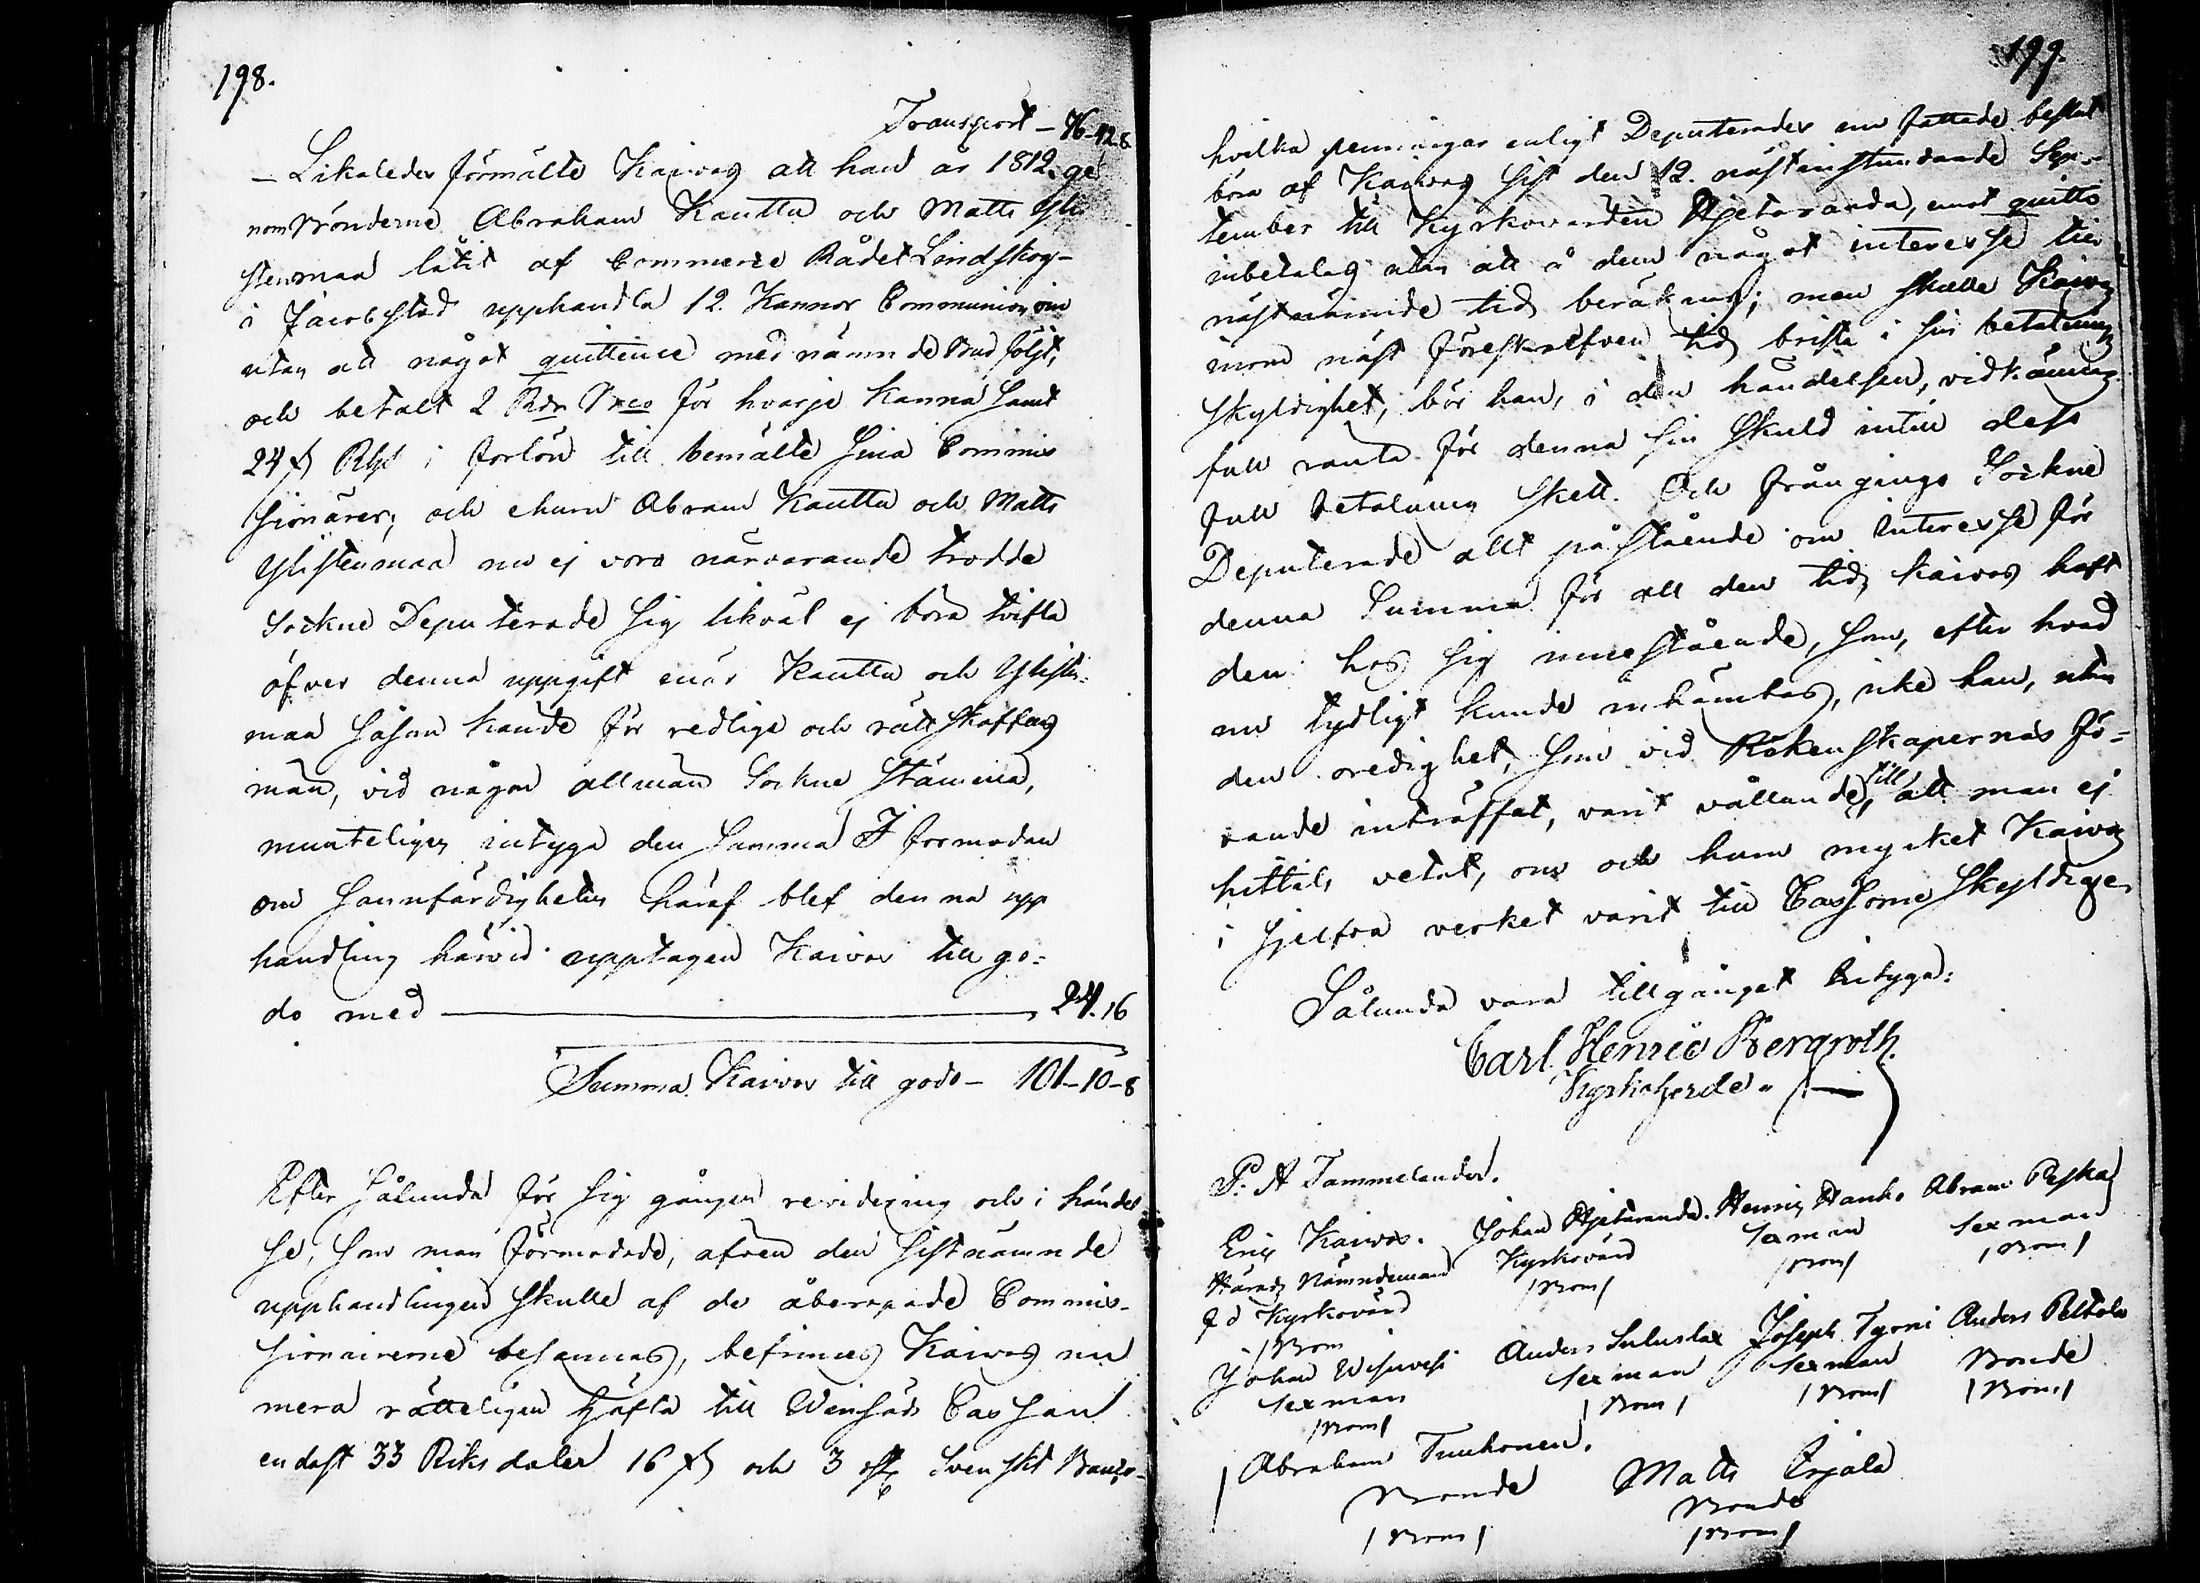 198.
Transport – 76–42.8
– Likaledes förmälte Kaivos att han år 1812. ge-
nom Bönderne Abraham Kauttu och Matts Yli
stenmaa låtit af Commerce Rådet Lindskog
i Jacobstad upphandla 12. Kannor Communion vin
utan att något quittence med nämnde Bud följt,
och betalt 2 Rdr Bco för hvarje Kanna samt
24 ß Rgs i forlön till bemälte sina Commis
sionärer; och ehuru Abram Kauttu och Matts
Ylistenmaa nu ej voro närvarande trodde
Sockne Deputerade sig likväl ej böra tvifla
öfver denna uppgift enär Kauttu och Ylisten-
maa såsom kände för redlige och rättskaffens
män, vid någon allmän Sockne Stämma,
munteligen intyga den samma I förmodan
om sannfärdigheten häraf blef denna upp
handling härvid upptagen Kaivos till go-
do med 24.16
Summa Kaivos till godo – 101–10–8
Efter sålunda för sig gången revidering och i händel
se, som man förmodade, äfven den sistnämnde
upphandlingen skulle af de åberopade Commis-
sionairerne besannas, befinnes Kaivos nu
mera rätteligen häfta till Winsäds Cassan
endast 33 Riksdaler 16 ß och 3 rst Svenskt Banco-
199.
hvilka penningar enligt Deputerades nu fattade beslut
böra af Kaivos sist den 12. nästinstundande Sep-
tember till Kyrkovärden Hjetaranda, emot quitto
inbetalas utan att å dem något interesse till
nästnämnde tid beräknas; men skulle Kaivos
inom näst föreskrefven tid brista i sin betalnings
skyldighet, bör han, i den händelsen, vidkännas
full ränta för denna sin skuld intill dess
full betalning skett. Och frångingo Sockne
Deputerade allt påstående om Interesse för
denna Summa för all den tid Kaivos haft
den hos sig innestående, som, efter hvad
nu tydligt kunde inhämtas, icke han, utan
den oredighet, som vid Räkenskapernas fö-
rande inträffat, varit vållande, till att man ej
hittils vetat, om och huru mycket Kaivos
i sjelfva verket varit till Cassorne skyldiger
Sålunda vara tillgånget intyga:
Carl Henric Bergroth
Kyrkoherde
P. A Tammelander.
Eric Kaivos. Johan Hjetaranda. Henric Hanko Abram Peska
Härads Nämndeman Kyrkovärd Sexman Sexman
f d Kyrkovärd /Bom/ /Bom/ /Bom/
/Bom
Johan Wisuvesi Anders Suluslax Joseph Tyrni Anders Peltola
Sexman Sexman Sexman Bonde
/Bom/ /Bom/ /Bom/ /Bom/
Abraham Tuuhonen. Matts Erjala
Bonde Bonde
/Bom/ /Bom/